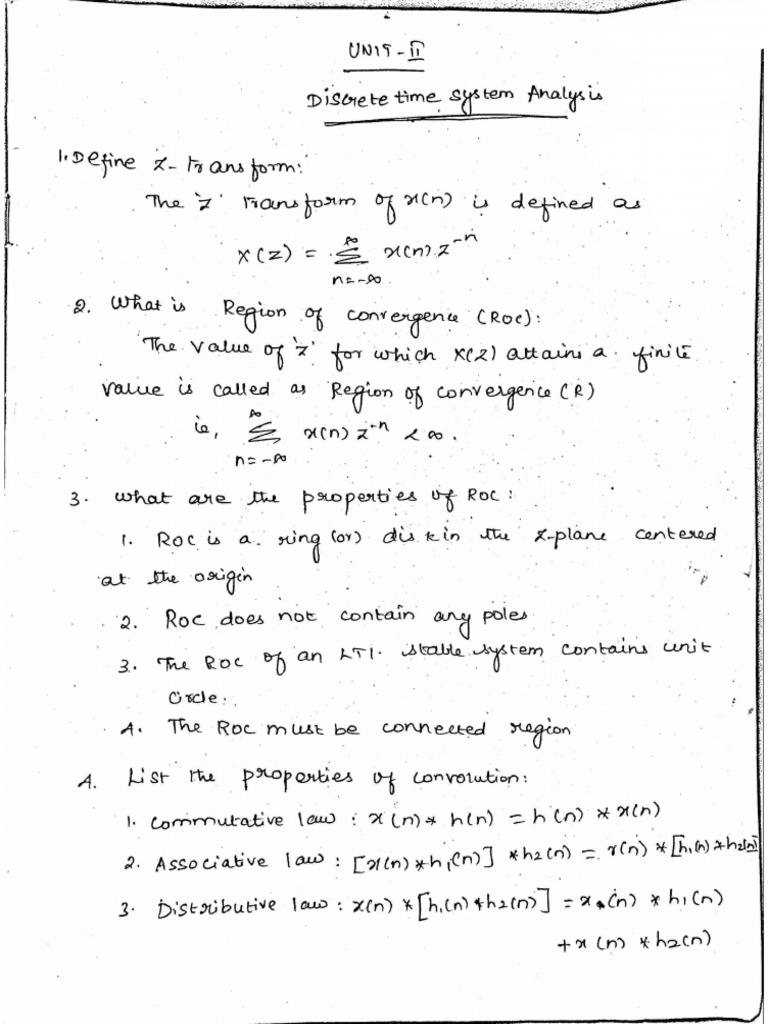 UNIT-II
Discrete time system Analysis
1. Define Z-transform:
The 'Z' transform of x(n) is defined as
X(Z) = ∞ Σ n=-∞ x(n). z^-n
2. What is Region of convergence (ROC):
The value of 'Z' for which X(Z) attains a finite
value is called as Region of convergence (R)
ie, ∞ Σ n=-∞ x(n) z^-n < ∞.
3. What are the properties of ROC:
1. ROC is a ring (or) disk in the z-plane centered
at the origin
2. ROC does not contain any poles
3. The ROC of an LTI stable system contains unit
Circle.
4. The ROC must be connected region
4. List the properties of convolution:
1. Commutative law : x(n) * h(n) = h(n) * x(n)
2. Associative law : [x(n) * h1(n)] * h2(n) = x(n) * [h1(n) * h2(n)]
3. Distributive law : x(n) * [h1(n) + h2(n)] = x(n) * h1(n)
+ x(n) * h2(n)